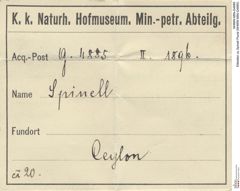 K. k. Naturh. Hofmuseum. Min.-petr. Abteilg.
Acq.-Post G. 4885 II. 1896.
Name Spinell
Fundort
Ceylon
ca 20.